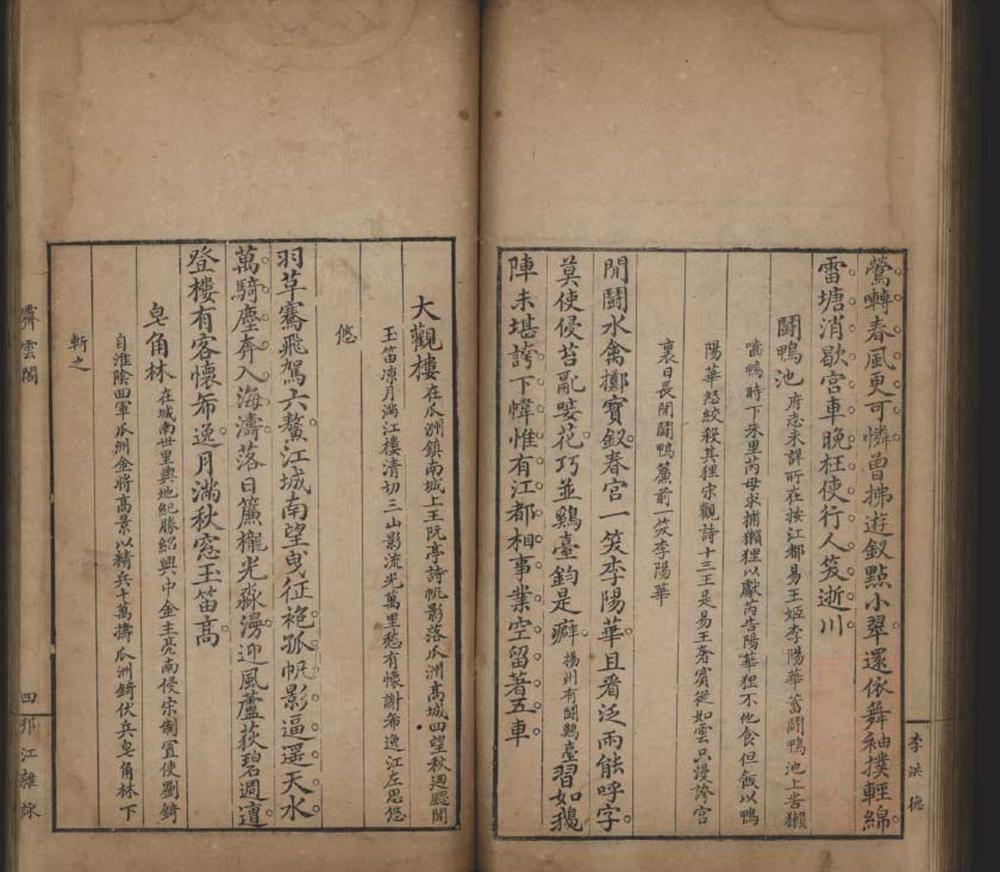 鶯囀春風更可憐曾拂遊釵點小翠還依舞袖撲輕綿
雷塘消歇宮車晚枉使行人笑逝川
鬪鴨池府志未詳所在按江都易王姬李陽華蓄鬪鴨池上苦獺
嚙鴨時下朱里芮母求捕獺狸以獻芮告陽華狸不他食但飯以鴨
陽華怒絞殺其狸宋觀詩十三王是易王奢賓從如雲只漫誇宮
裏日長閉鬪鴨簾前一笑李陽華
閒鬪水禽擲寶釵春宮一笑李陽華且看泛雨能呼字
莫使侵苔亂唼花巧並鷄臺鈞是癖揚州有鬪鷄臺習如鵝
陣未堪誇下幃惟有江都相事業空留著五車
李洪德
大觀樓在瓜洲鎮南城上王阮亭詩帆影落瓜洲高城四望秋迥颸聞
玉笛涼月滿江樓清切三山影流光萬里愁有懷謝希逸江左思悠
悠
羽草騫飛駕六鰲江城南望曳征袍孤帆影逼遥天水
萬騎塵奔入海濤落日簾櫳光淼漫迎風蘆荻碧週遭
登樓有客懷希逸月滿秋窓玉笛高
皂角林在城南卅里輿地紀勝紹興中金主亮南侵宋制置使劉錡
自淮陰回軍瓜洲金將高景以精兵十萬擣瓜洲錡伏兵皂角林下
斬之
霽雲閣
四
邗江雜詠